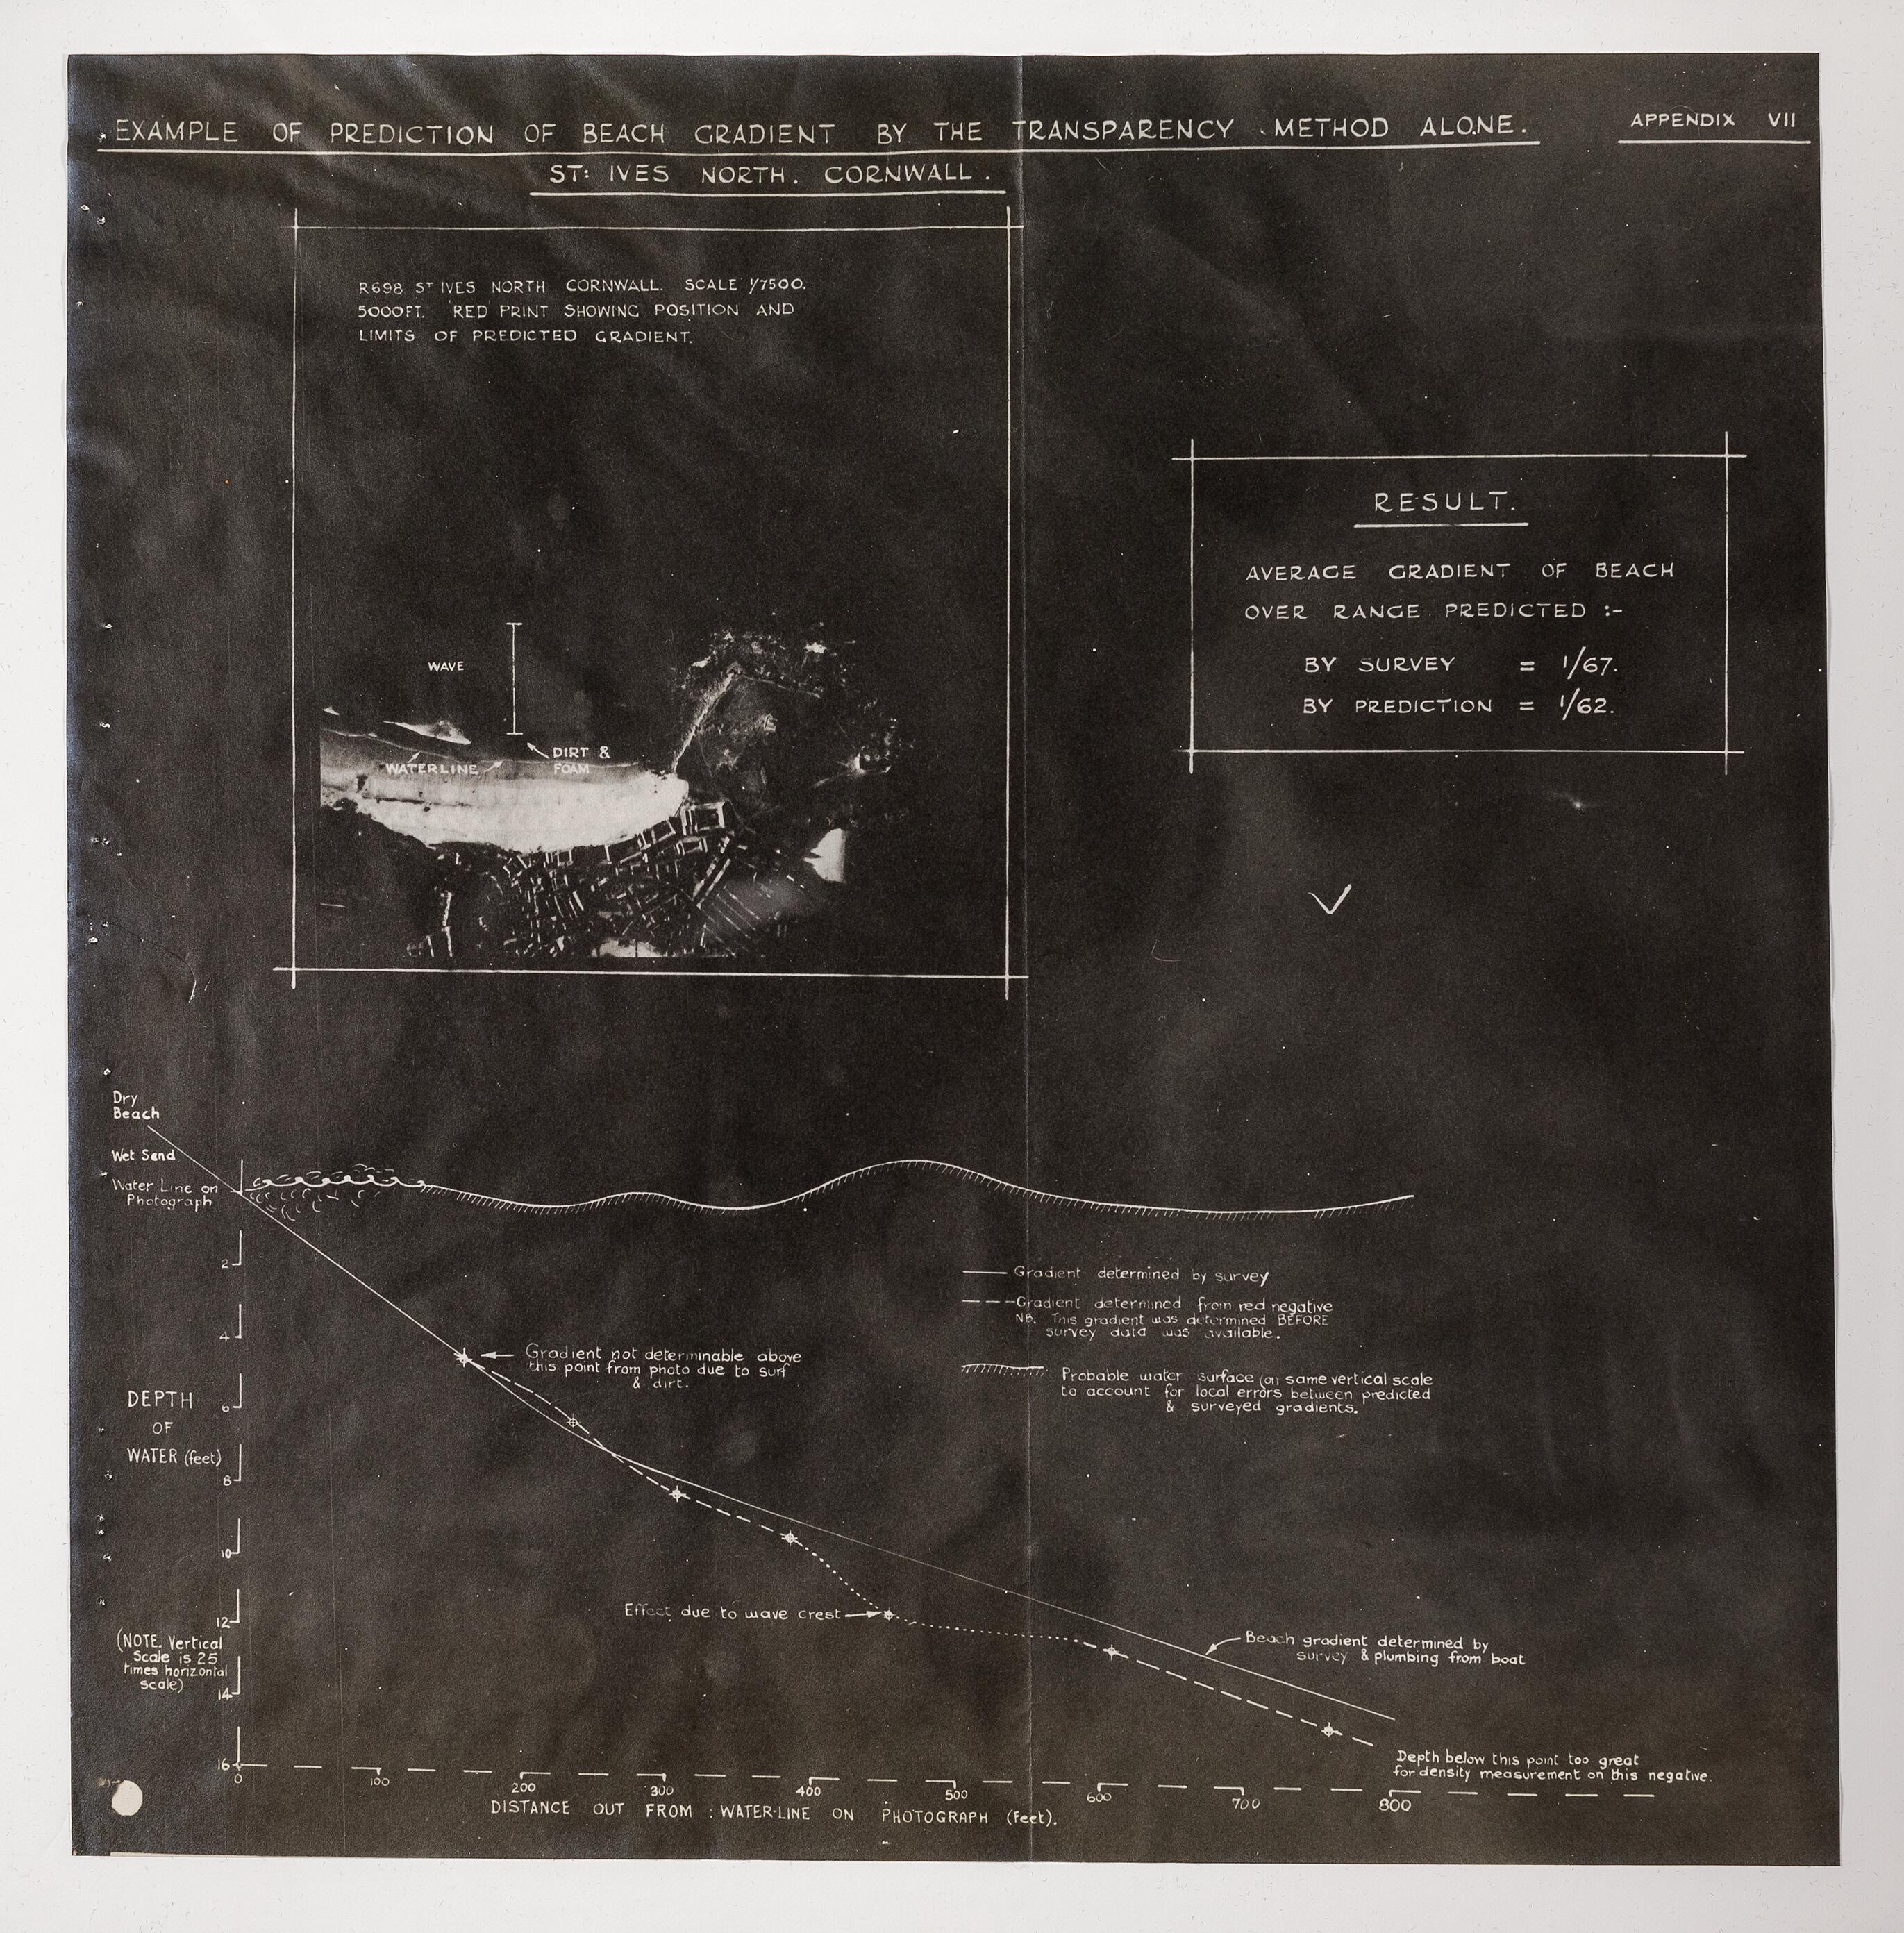 EXAMPLE OF PREDICTION OF BEACH GRADIENT BY THE TRANSPARENCY METHOD ALONE.
APPENDIX VII
ST: IVES NORTH. CORNWALL.
R698 ST IVES NORTH CORNWALL. SCALE 1/7500.
5000FT. RED PRINT SHOWING POSITION AND
LIMITS OF PREDICTED GRADIENT.
WAVE
DIRT &
FOAM
WATERLINE
RESULT.
AVERAGE GRADIENT OF BEACH
OVER RANGE PREDICTED :-
BY SURVEY = 1/67.
BY PREDICTION = 1/62.
Dry
Beach
Wet Sand
Water Line on
Photograph
2
4
6
8
10
12
14
16
DEPTH
OF
WATER (feet)
(NOTE. Vertical
Scale is 25
times horizontal
scale)
Gradient determined by survey
Gradient determined from red negative
NB. This gradient was determined BEFORE
survey data was available.
Probable water surface (on same vertical scale
to account for local errors between predicted
& surveyed gradients.
Gradient not determinable above
this point from photo due to surf
& dirt.
Effect due to wave crest
Beach gradient determined by
survey & plumbing from boat
Depth below this point too great
for density measurement on this negative.
0 100 200 300 400 500 600 700 800
DISTANCE OUT FROM WATER-LINE ON PHOTOGRAPH (feet).